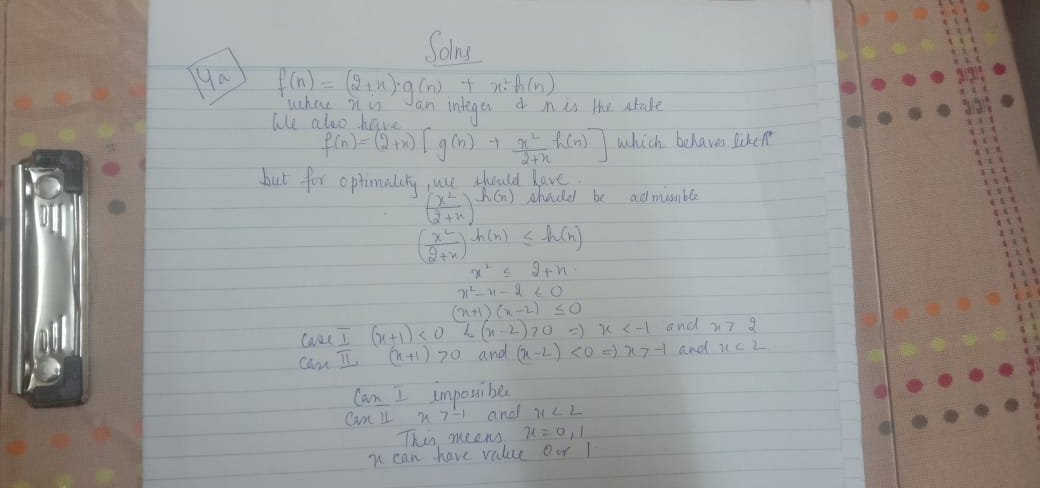 Solns
4a
f(n) = (2+x)·g(n) + x²·h(n)
where x is an integer & n is the state
We also have
f(n) = (2+x) [ g(n) + x²/(2+x) h(n) ] which behaves like A*
but for optimality, we should have.
(x²/(2+x)) h(n) should be admissible
(x²/(2+x)) h(n) ≤ h(n)
x² ≤ 2+x
x²-x-2 ≤ 0
(x+1) (x-2) ≤ 0
Case I (x+1) < 0 & (x-2) > 0 => x < -1 and x > 2
Case II (x+1) > 0 and (x-2) < 0 => x > -1 and x < 2
Case I impossible
Case II x > -1 and x < 2
This means x = 0, 1
x can have value 0 or 1